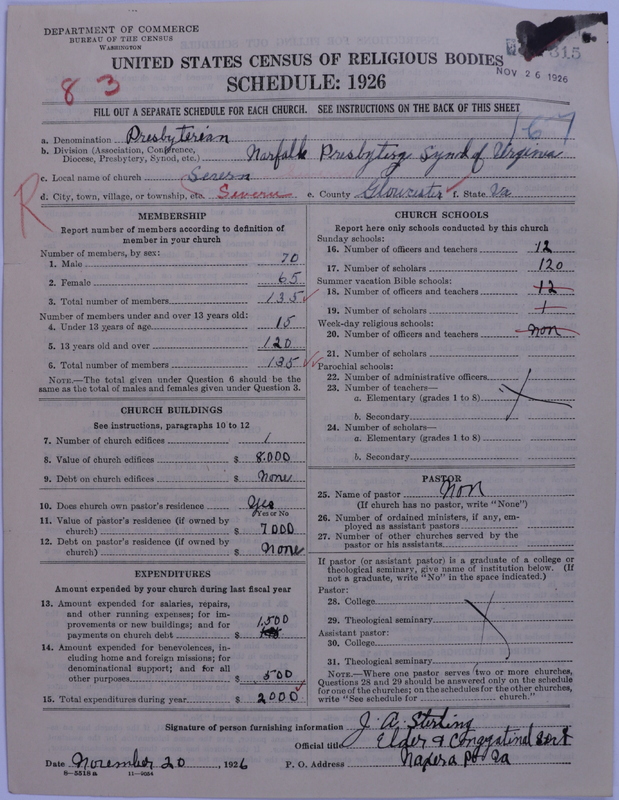 DEPARTMENT OF COMMERCE
BUREAU OF THE CENSUS
WASHINGTON
315
NOV 26 1926
UNITED STATES CENSUS OF RELIGIOUS BODIES
83
SCHEDULE: 1926
FILL OUT A SEPARATE SCHEDULE FOR EACH CHURCH. SEE INSTRUCTIONS ON THE BACK OF THIS SHEET
167
a. Denomination Presbyterian
b. Division (Association, Conference, Diocese, Presbytery, Synod, etc.) Norfolk Presbytry Synod of Virginia
c. Local name of church Severn
d. City, town, village, or township, etc. Severn e. County Gloucester f. State Va
R
MEMBERSHIP
Report number of members according to definition of
member in your church
Number of members, by sex:
1. Male 70
2. Female 65
3. Total number of members 135
Number of members under and over 13 years old:
4. Under 13 years of age 15
5. 13 years old and over 120
6. Total number of members 135
NOTE.—The total given under Question 6 should be
the same as the total of males and females given under Question 3.
CHURCH BUILDINGS
See instructions, paragraphs 10 to 12
7. Number of church edifices 1
8. Value of church edifices $ 8.000
9. Debt on church edifices $ None
10. Does church own pastor's residence Yes
Yes or No
11. Value of pastor's residence (if owned by
church) $ 7000
12. Debt on pastor's residence (if owned by
church) $ None
EXPENDITURES
Amount expended by your church during last fiscal year
13. Amount expended for salaries, repairs,
and other running expenses; for im-
provements or new buildings; and for
payments on church debt $ 1,500
14. Amount expended for benevolences, in-
cluding home and foreign missions; for
denominational support; and for all
other purposes $ 500
15. Total expenditures during year $ 2000
CHURCH SCHOOLS
Report here only schools conducted by this church
Sunday schools:
16. Number of officers and teachers 12
17. Number of scholars 120
Summer vacation Bible schools:
18. Number of officers and teachers 12
19. Number of scholars 1
Week-day religious schools:
20. Number of officers and teachers non
21. Number of scholars
Parochial schools:
22. Number of administrative officers
23. Number of teachers—
a. Elementary (grades 1 to 8)
b. Secondary
24. Number of scholars—
a. Elementary (grades 1 to 8)
b. Secondary
PASTOR
25. Name of pastor Non
(If church has no pastor, write "None")
26. Number of ordained ministers, if any, em-
ployed as assistant pastors
27. Number of other churches served by the
pastor or his assistants
If pastor (or assistant pastor) is a graduate of a college or
theological seminary, give name of institution below. (If
not a graduate, write "No" in the space indicated.)
Pastor:
28. College
29. Theological seminary
Assistant pastor:
30. College
31. Theological seminary
NOTE.—Where one pastor serves two or more churches,
Questions 28 and 29 should be answered only on the schedule
for one of the churches; on the schedules for the other churches,
write "See schedule for church."
Signature of person furnishing information J. A. Sterling
Official title Elder &
Date November 20, 1926 P. O. Address Va
8-5518a 11-9054